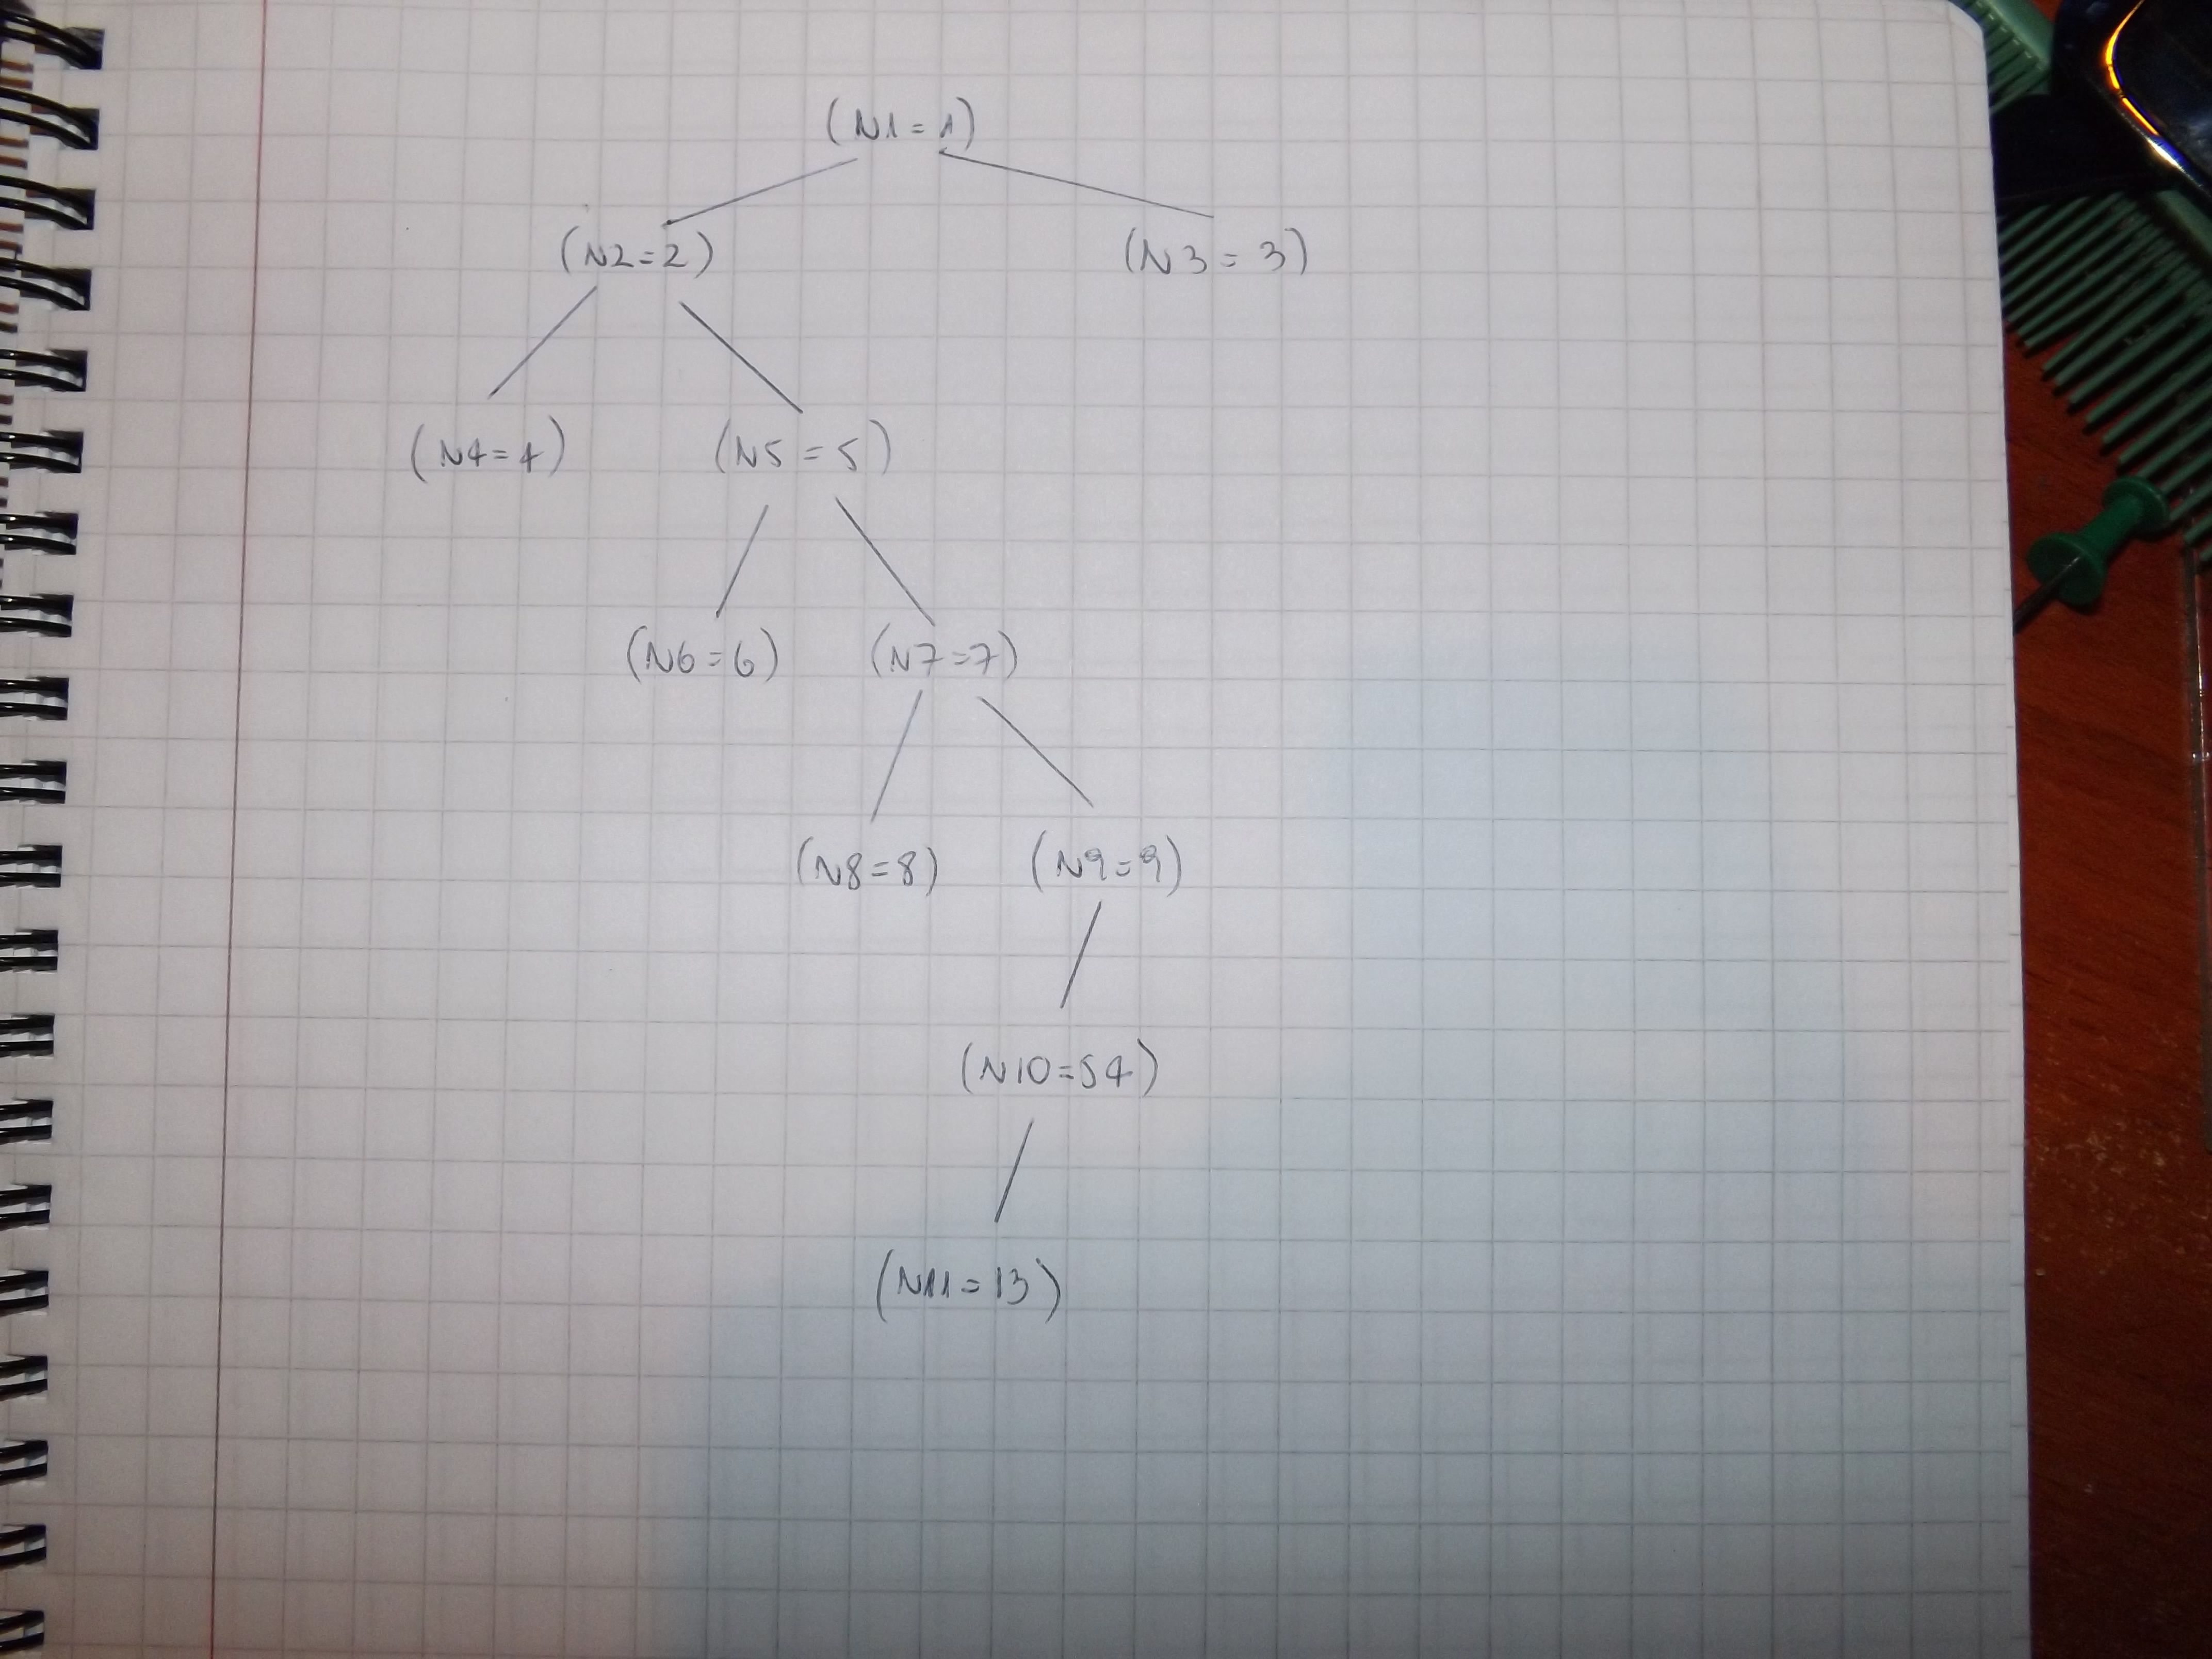 (N1=1)
(N2=2) (N3=3)
(N4=4) (N5=5)
(N6=6) (N7=7)
(N8=8) (N9=9)
(N10=54)
(N11=13)